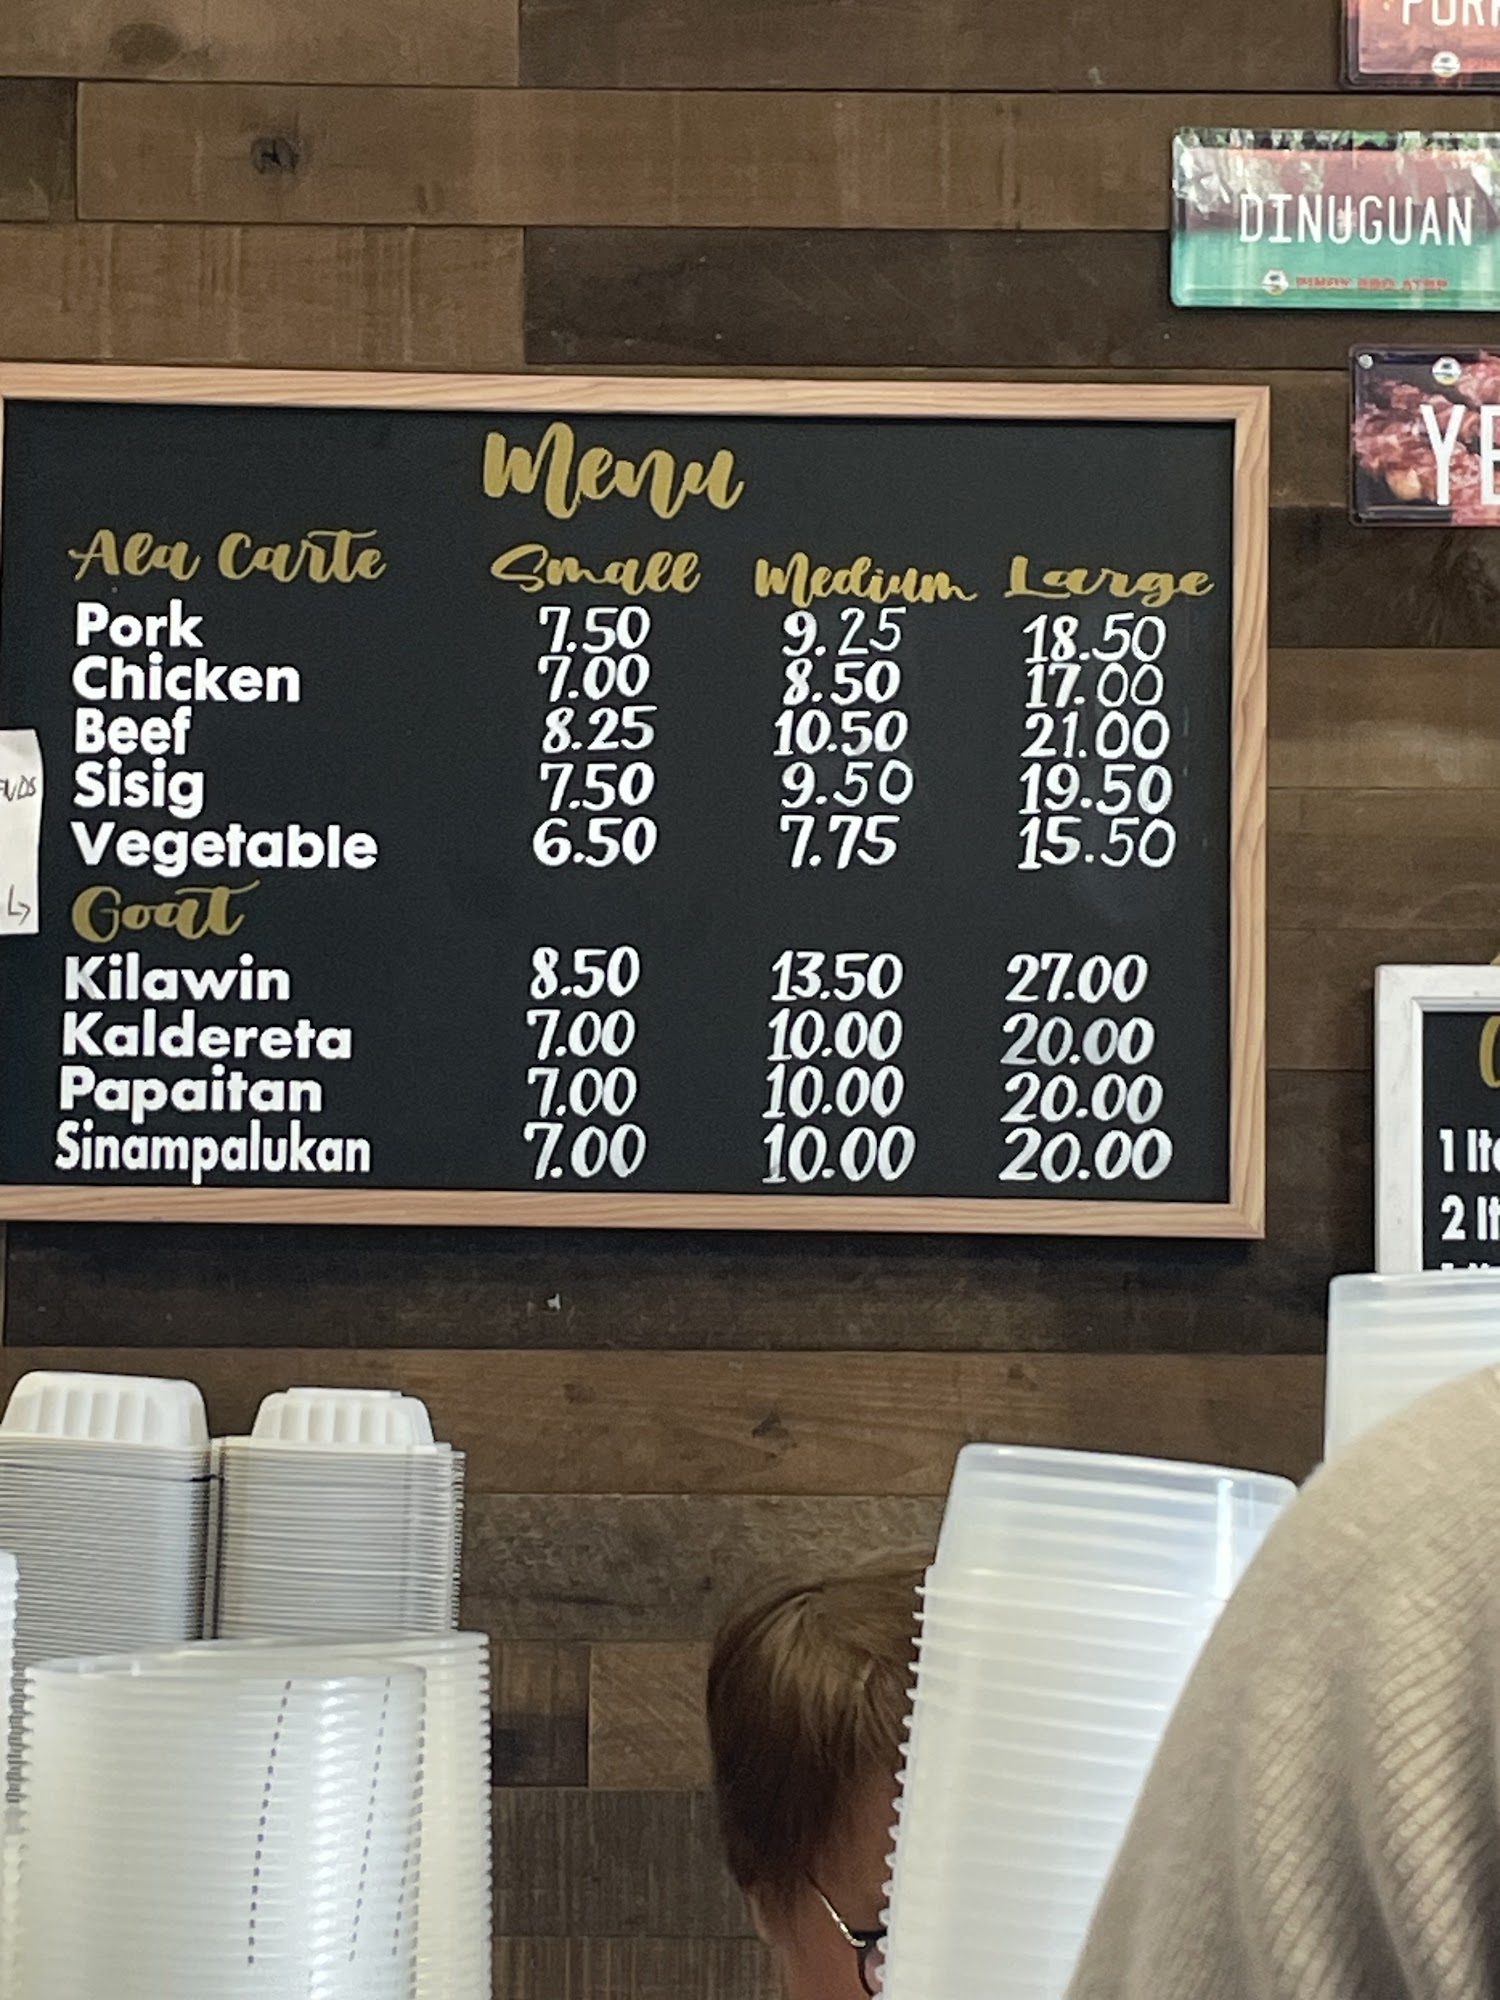 DINUGUAN
PINOY BBQ ATBP
YE
Menu
Ala Carte Small Medium Large
Pork 7.50 9.25 18.50
Chicken 7.00 8.50 17.00
Beef 8.25 10.50 21.00
Sisig 7.50 9.50 19.50
Vegetable 6.50 7.75 15.50
Goat
Kilawin 8.50 13.50 27.00
Kaldereta 7.00 10.00 20.00
Papaitan 7.00 10.00 20.00
Sinampalukan 7.00 10.00 20.00
1 It
2 It